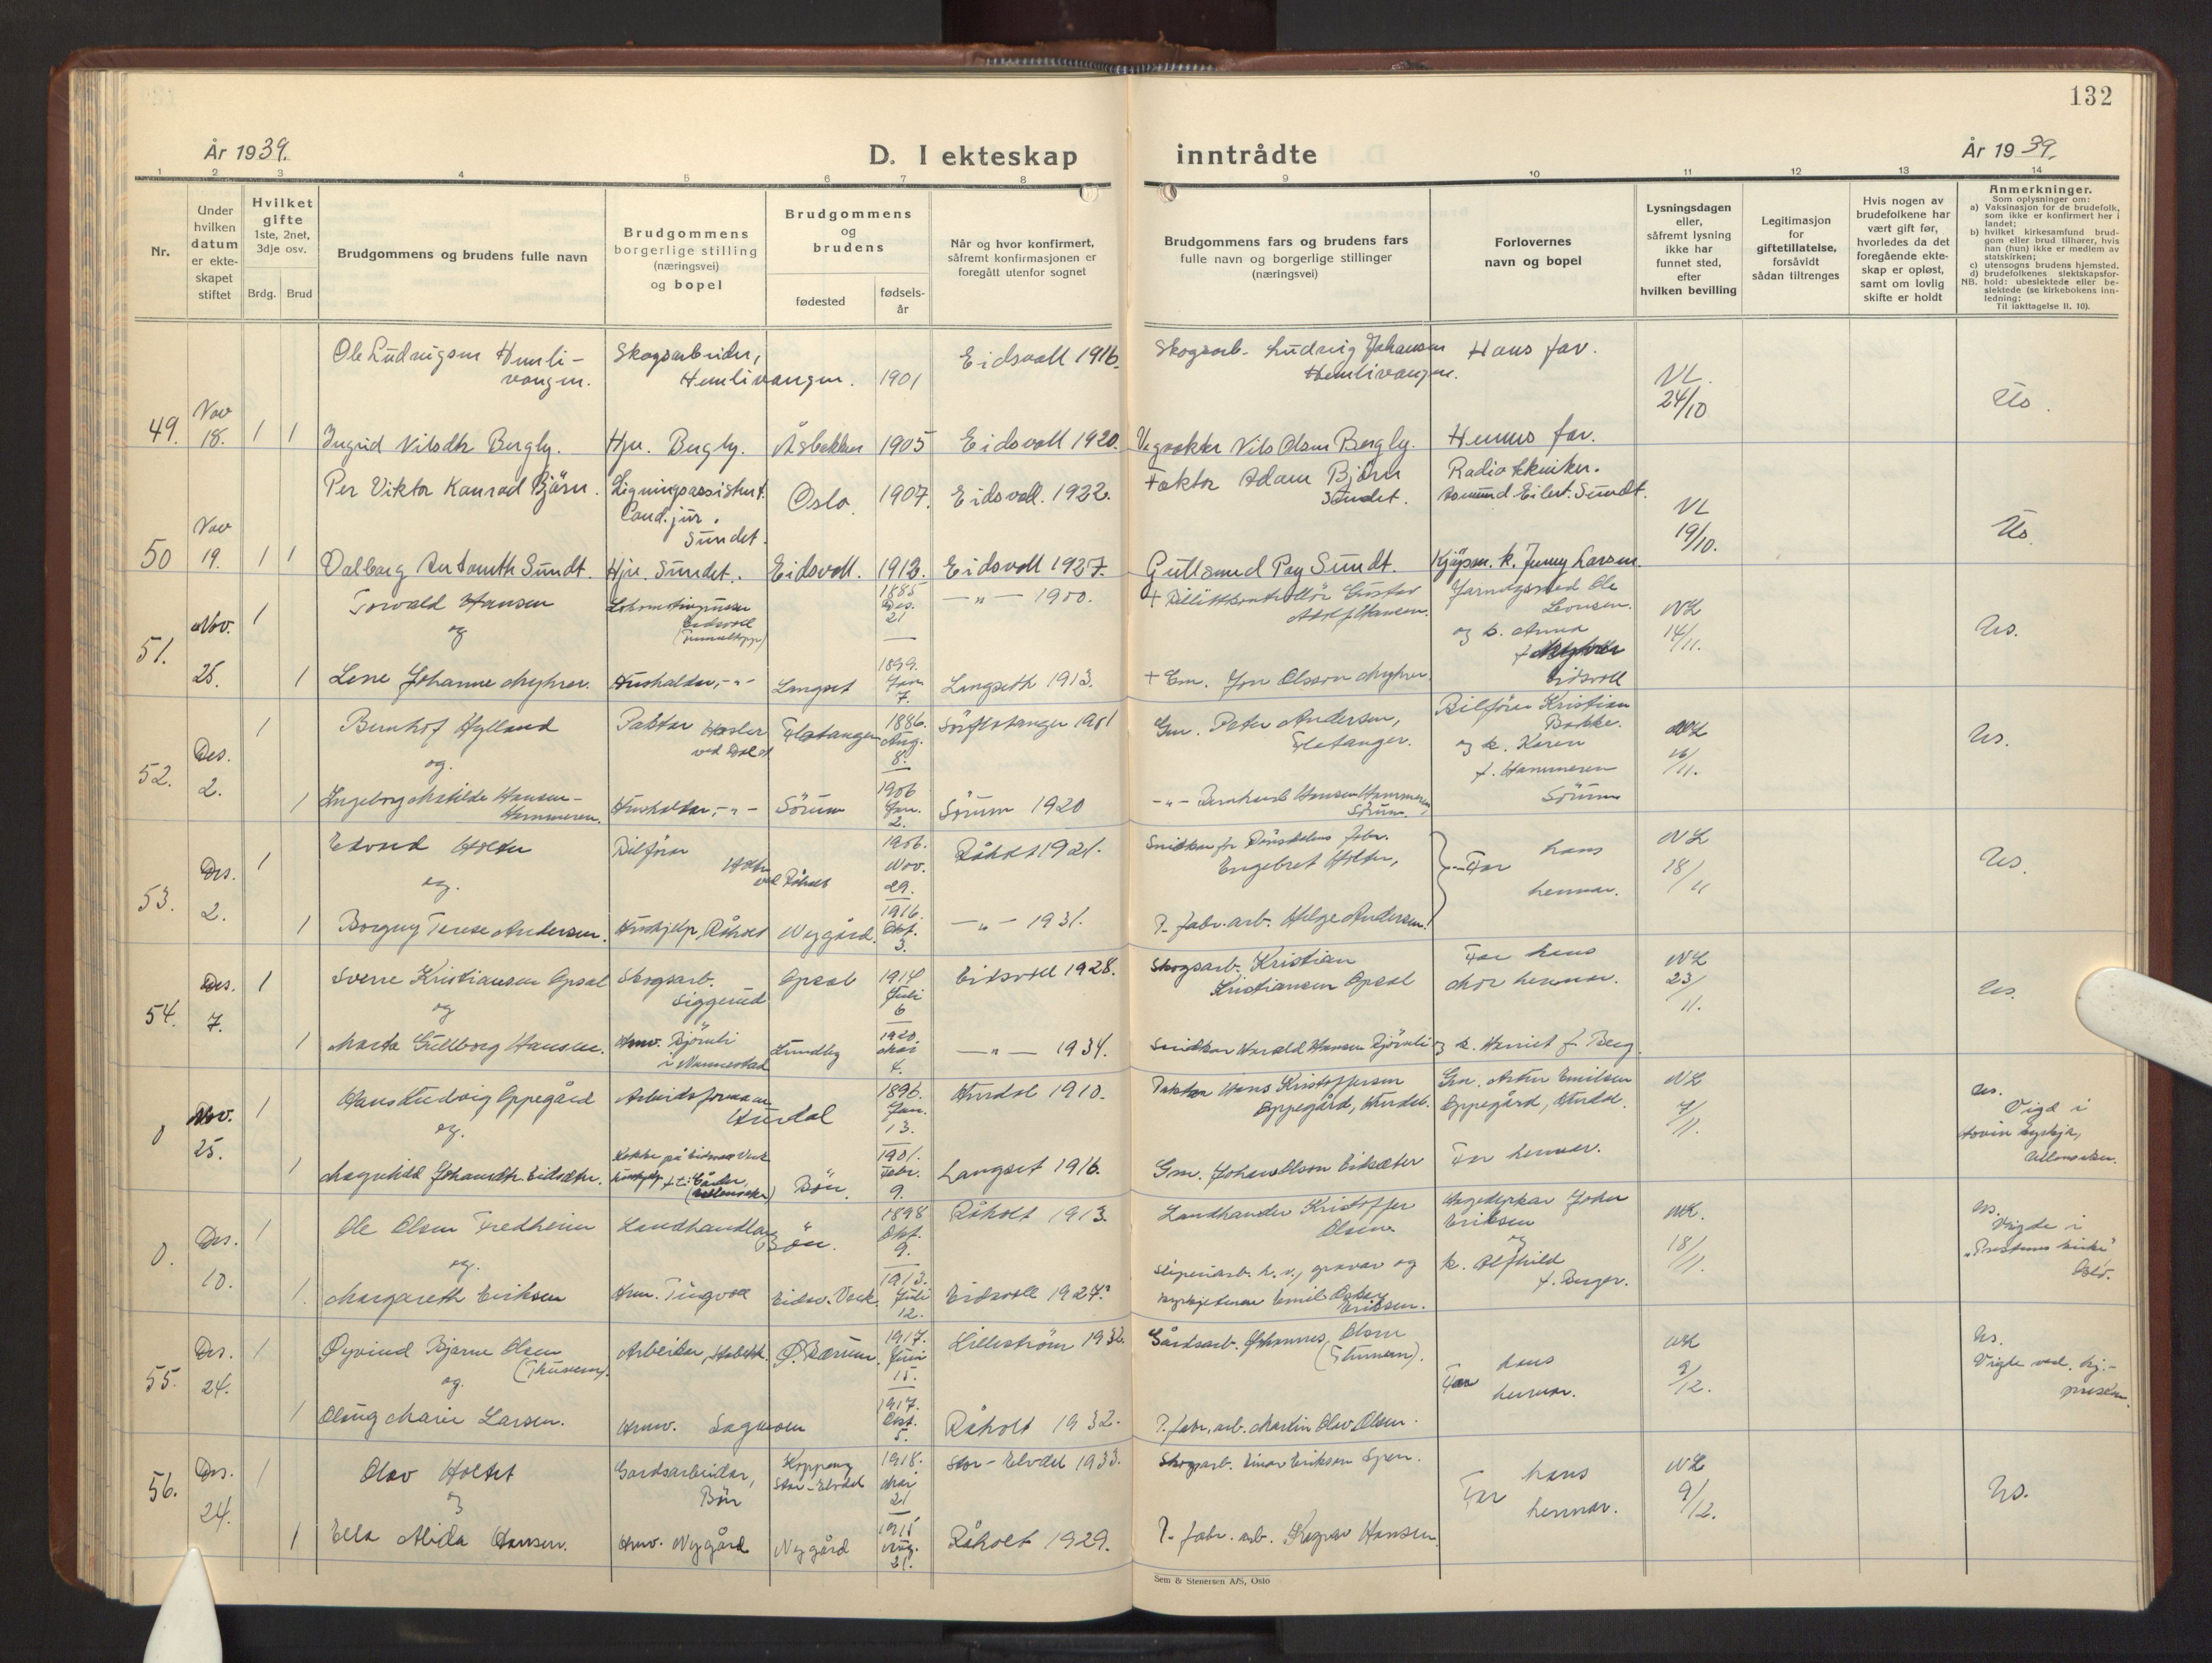 132
År 1939.
D. I ekteskap
inntrådte
År 1939.
1 2 3 4 5 6 7 8 9 10 11 12 13 14
Nr.
Under
hvilken
datum
er ekte-
skapet
stiftet
Hvilket
gifte
1ste, 2net,
3dje osv.
Brdg. Brud
Brudgommens og brudens fulle navn
Brudgommens
borgerlige stilling
(næringsvei)
og bopel
Brudgommens
og
brudens
fødested
fødsels-
år
Når og hvor konfirmert,
såfremt konfirmasjonen er
foregått utenfor sognet
Brudgommens fars og brudens fars
fulle navn og borgerlige stillinger
(næringsvei)
Forlovernes
navn og bopel
Lysningsdagen
eller,
såfremt lysning
ikke har
funnet sted,
efter
hvilken bevilling
Legitimasjon
for
giftetillatelse,
forsåvidt
sådan tiltrenges
Hvis nogen av
brudefolkene har
vært gift før,
hvorledes da det
foregående ekte-
skap er opløst,
samt om lovlig
skifte er holdt
Anmerkninger.
Som oplysninger om:
a) Vaksinasjon for de brudefolk,
som ikke er konfirmert her i
landet;
b) hvilket kirkesamfund brud-
gom eller brud tilhører, hvis
han (hun) ikke er medlem av
statskirken;
c) utensogns brudens hjemsted.
d) brudefolkenes slektskapsfor-
NB. hold: ubeslektede eller be-
slektede (se kirkebokens inn-
ledning;
Til iakttagelse II. 10).
Ole Ludvigsen Hemli- Skogsarbeider, Eidsvoll 1916. Skogsarb. Ludvig Johansen Hans far.
vangen. Hemlivangen. 1901 Hemlivangen.
24/10
Us.
49. Nov 18. 1 1 Ingrid Nilsdtr Bergly. Hju. Bergly. Åsbakken 1905 Eidsvoll 1920. Vegvokter Nils Olsen Bergly. Hennes far.
Per Viktor Konrad Bjørn. Ligningsassistent. Oslo 1907. Eidsvoll. 1922. Faktor Adam Bjørn Radiotekniker.
Cand. jur. Sundet. Sundet. Asmund Eilert. Sundt.
19/10. Us.
50 Nov 19. 1 1 Valborg Sundt. Hju. Sundet. Eidsvoll. 1912. Eidsvoll 1927. Gullsmed Sundt. Kjøpm. k. Jenny Larsen.
Torvald Hansen 1885 Des. 21 — " — 1900. + Billettkontrollør Gustav Adolf Hansen. Ole
og Eidsvoll og k. Anna
51. Nov. 25. 1 NL 14/11. Us.
1 Lene Johanne Myhrer. Husholder, - " - Langset 1899. Jan 7. Langseth 1913. + Gm. Jon Olsson Myhrer. Eidsvoll
1 Bernhof Hylland Flatanger 1886. Aug. 8. 1901 Gm. Peter Andersen, Bilfører Kristian Bakke.
og. Flatanger. og k. Karen
52. Des. 2. f. Hammeren NL 16/11. Us.
1 Ingeborg Matilde Hansen- Husholder, - " - Sørum 1906 Jan. 2. Sørum 1920 - " - Hansen Hammeren Sørum
Hammeren. Sørum
1 Edvard Holter Bilfører 1906. Nov. 29. Råholt 1921. Engebret Holter, hans NL
og. ved Råholt Far 18/11 Us.
53. Des. 2. hennar.
1 Borgny Terese Andersen. Hushjelp, Råholt Nygård. 1916. Okt. 3. — " — 1931. P. fabr. arb. Helge Andersen.
54. Des. 7. 1 Sverre Kristiansen Opsal Skogsarb. Opsal 1914 Juli 6 Eidsvoll 1928. Skogsarb. Kristian Far hans NL
og Siggerud Kristiansen Opsal Mor hennar. 23/11. Us.
1 Marta Gullborg Hansen. Hmv. Bjørnli Lundby 1920. Mai 4. — " — 1934. Snikkar Harald Hansen Bjørnli og k. Harriet f. Berg.
i Nannestad
0 Nov. 25. 1 Hans Ludvig Oppegård Arbeidsformann Hurdal 1896. Jan. 13. Hurdal 1910. Hans Kristoffersen Gm. Artur Emilsen NL
og. Oppegård, Hurdal. Oppegård, Hurdal. 7/11. Us. Vigd i
Hovin kyrkje,
Ullensaker.
1 Magnhild Johansdtr. Eidsæter. Bøn. 1901. Febr. 9. Langset 1916. Gm. Johan Olson Eidsæter Far hennar.
0. Des. 10. 1 Ole Olsen Fredheim Landhandlar Bøn. 1898 Okt. 9. Råholt 1913. Landhandler Kristoffer Johan Eriksen NL.
og. Olsen. og 18/11. Us. Vigde i
k. Alfhild
f. Berger. Oslo.
1. Margareth Eriksen Hmv. Tingvoll Eidsv. Verk. 1913. Juli 12. Eidsvoll 1927. gravar og
Emil Oskar Eriksen.
55. Des. 24. 1 Øyvind Bjarne Olsen Arbeider, Ø. Bærum. 1917. Juni 15. Lillestrøm 1932. Gårdsarb. Johannes Olsen hans NL
(Thuren). og. Far hennar. 9/12. Us. Vigde ved
1 Olaug Marie Larsen. Hmv. Sagmoen 1917. Okt. 5. Råholt 1932. P. fabr. arb. Martin Olav Olsen.
56. Des. 24. 1 Olav Holtet Gardsarbeidar, Koppang 1918. Mai 21 Stor-Elvdal 1933. Skogsarb. Einar Eriksen hans NL
og Bøn Stor-Elvdal Far hennar. 9/12. Us.
1 Ella Alida Hansen. Hmv. Nygård Nygård 1915 Aug. 21. Råholt 1929. P. fabr. arb. Hansen
Sem & Stenersen A/S, Oslo